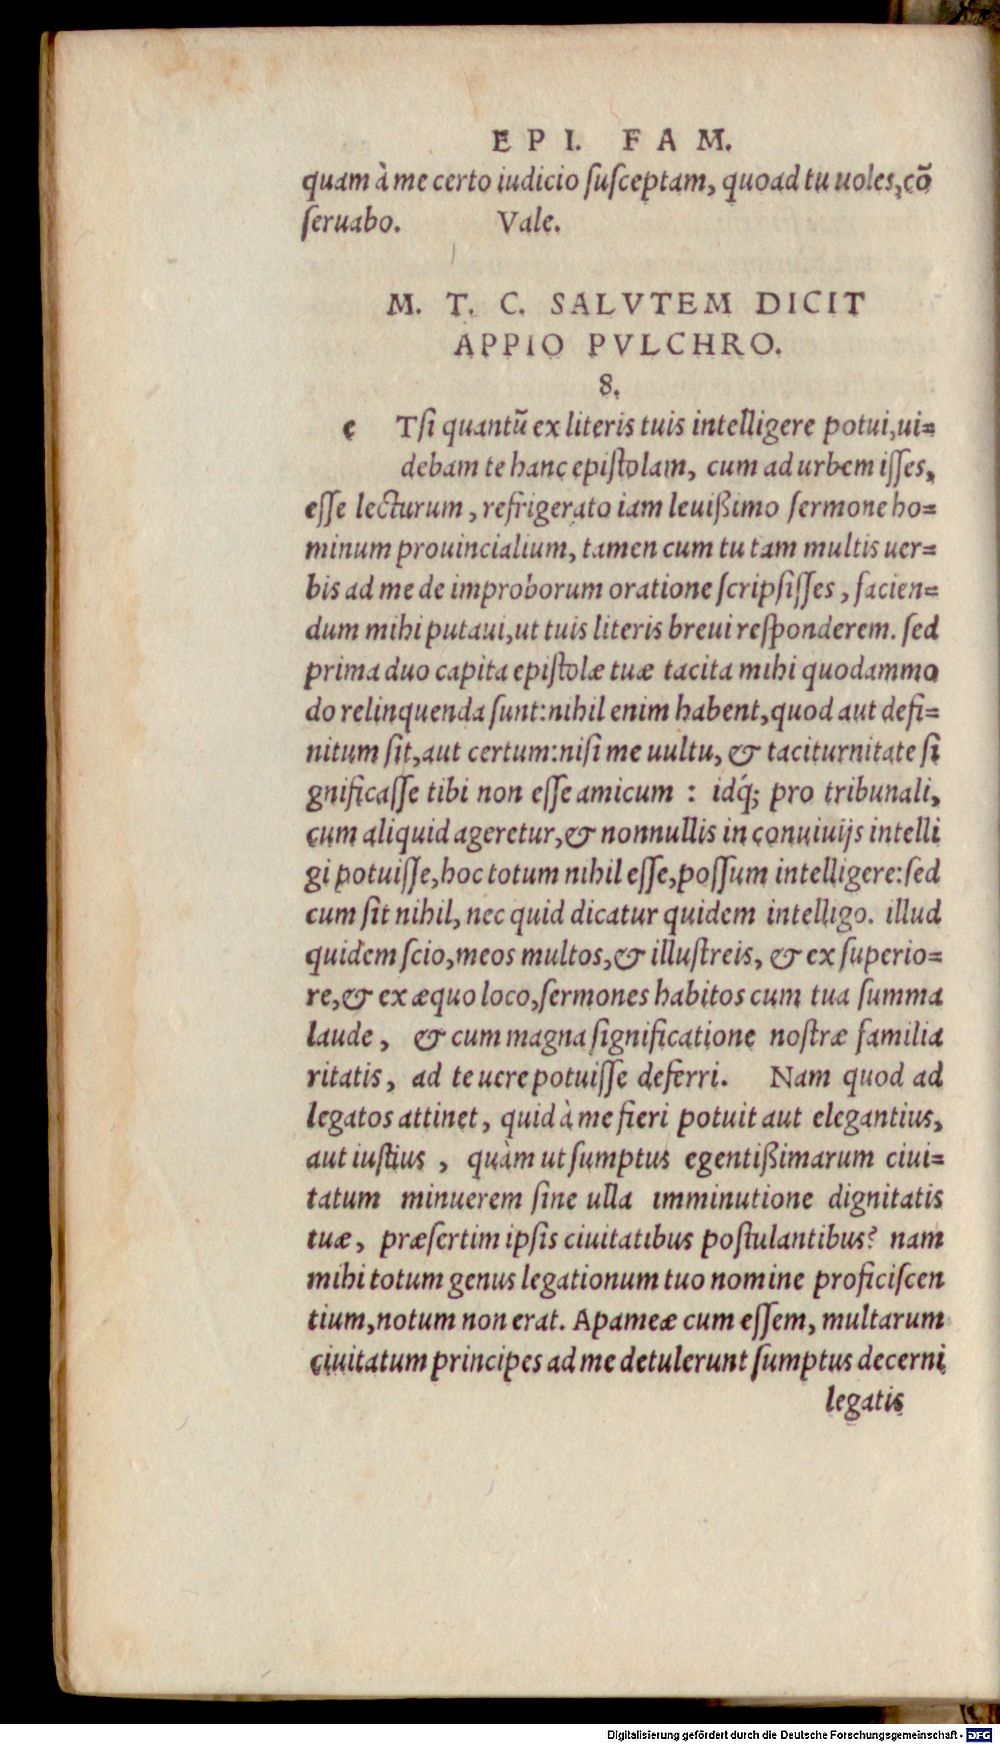 EPI. FAM.
quam à me certo iudicio ſuſceptam, quoad tu uoles, cō
ſeruabo. Vale.
M. T. C. SALVTEM DICIT
APPIO PVLCHRO.
8.
e TSi quantū ex literis tuis intelligere potui, ui=
debam te hanc epiſtolam, cum ad urbem iſſes,
eſſe lecturum, refrigerato iam leuißimo ſermone ho=
minum prouincialium, tamen cum tu tam multis uer=
bis ad me de improborum oratione ſcripſiſſes, facien=
dum mihi putaui, ut tuis literis breui reſponderem. ſed
prima duo capita epiſtolæ tuæ tacita mihi quodammo
do relinquenda ſunt: nihil enim habent, quod aut defi=
nitum ſit, aut certum: niſi me uultu, & taciturnitate ſi
gnificaſſe tibi non eſſe amicum : idq́; pro tribunali,
cum aliquid ageretur, & nonnullis in conuiuijs intelli
gi potuiſſe, hoc totum nihil eſſe, poſſum intelligere: ſed
cum ſit nihil, nec quid dicatur quidem intelligo. illud
quidem ſcio, meos multos, & illuſtreis, & ex ſuperio=
re, & ex æquo loco, ſermones habitos cum tua ſumma
laude, & cum magna ſignificatione noſtræ familia
ritatis, ad te uere potuiſſe deferri. Nam quod ad
legatos attinet, quid à me fieri potuit aut elegantius,
aut iuſtius, quàm ut ſumptus egentißimarum ciui=
tatum minuerem ſine ulla imminutione dignitatis
tuæ, præſertim ipſis ciuitatibus poſtulantibus? nam
mihi totum genus legationum tuo nomine proficiſcen
tium, notum non erat. Apameæ cum eſſem, multarum
ciuitatum principes ad me detulerunt ſumptus decerni
legatis
Digitalisierung gefördert durch die Deutsche Forschungsgemeinschaft - DFG